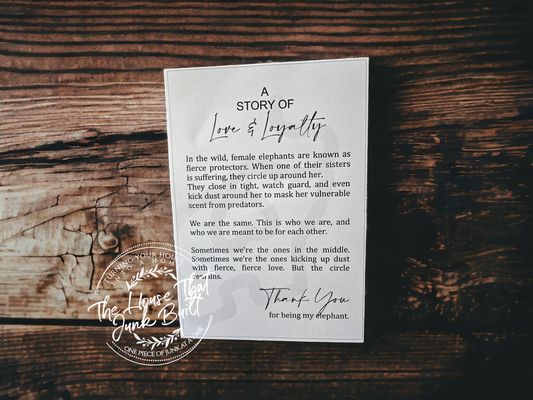 A
STORY OF
Love & Loyalty
In the wild, female elephants are known as
fierce protectors. When one of their sisters
is suffering, they circle up around her.
They close in tight, watch guard, and even
kick dust around her to mask her vulnerable
scent from predators.
We are the same. This is who we are, and
who we are meant to be for each other.
Sometimes we're the ones in the middle.
Sometimes we're the ones kicking up dust
with fierce, fierce love. But the circle
remains.
Thank You
for being my elephant.
TURNING YOUR HOUSE
HOME
The House That
Junk Built
...ONE PIECE OF JUNK AT A TIME